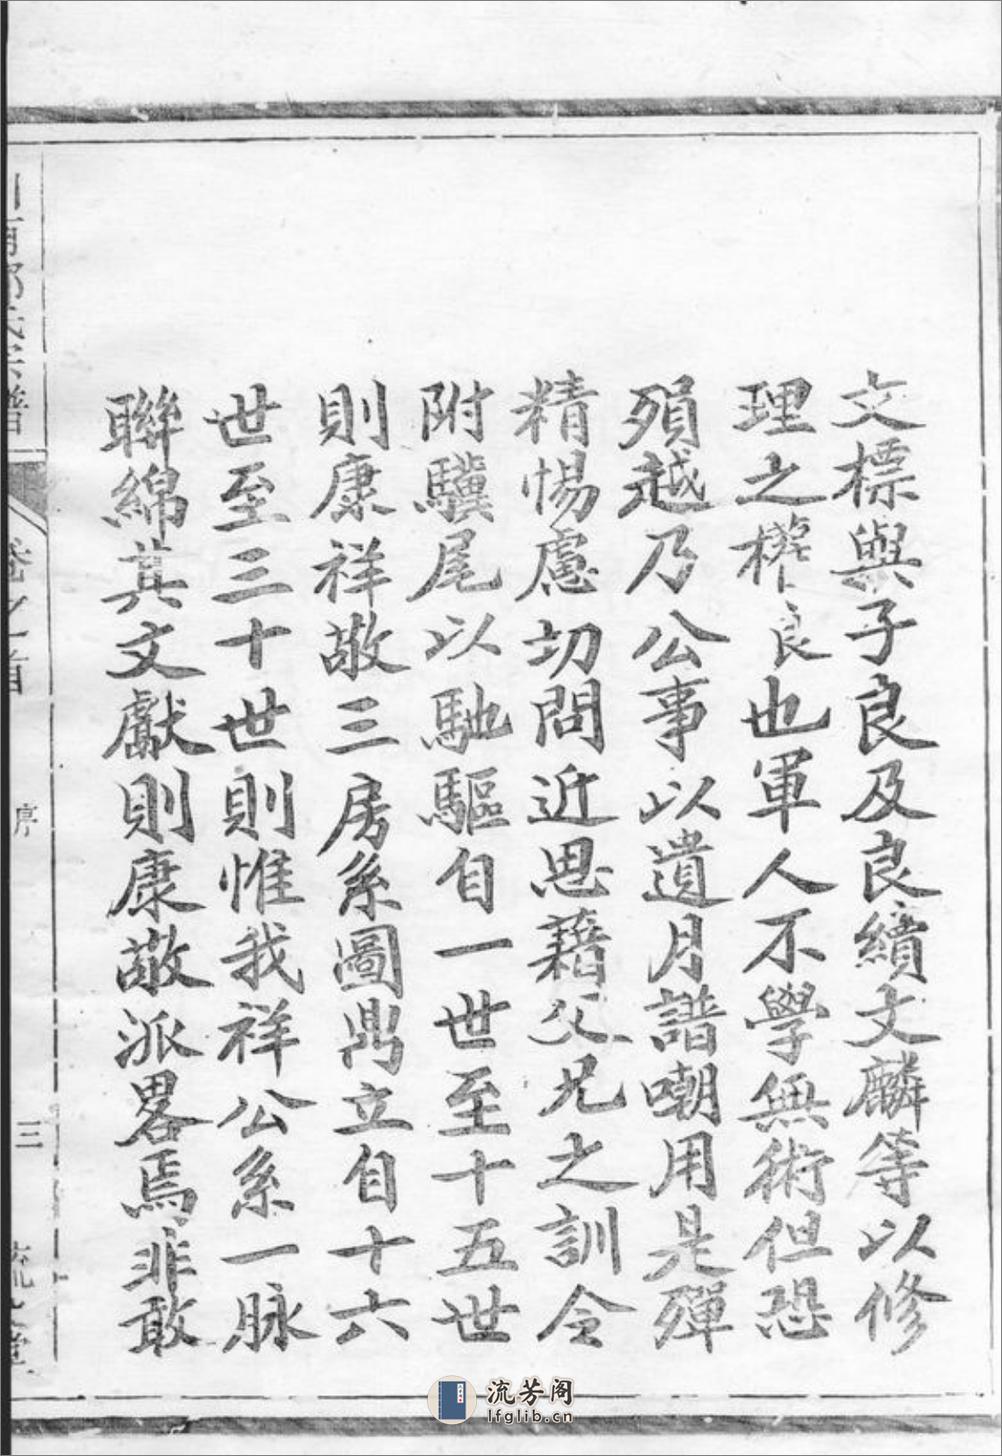 文標與子良及良續文麟等以修
理之權良也軍人不學無術但恐
殞越乃公事以遺月譜嘲用是殫
精惕慮切問近思藉父兄之訓令
附驥尾以馳驅自一世至十五世
則康祥敬三房系圖鼎立自十六
世至三十世則惟我祥公系一脉
聯綿其文獻則康敬派畧焉非敢
卷之首
序
三
流芳阁
lfglib.cn